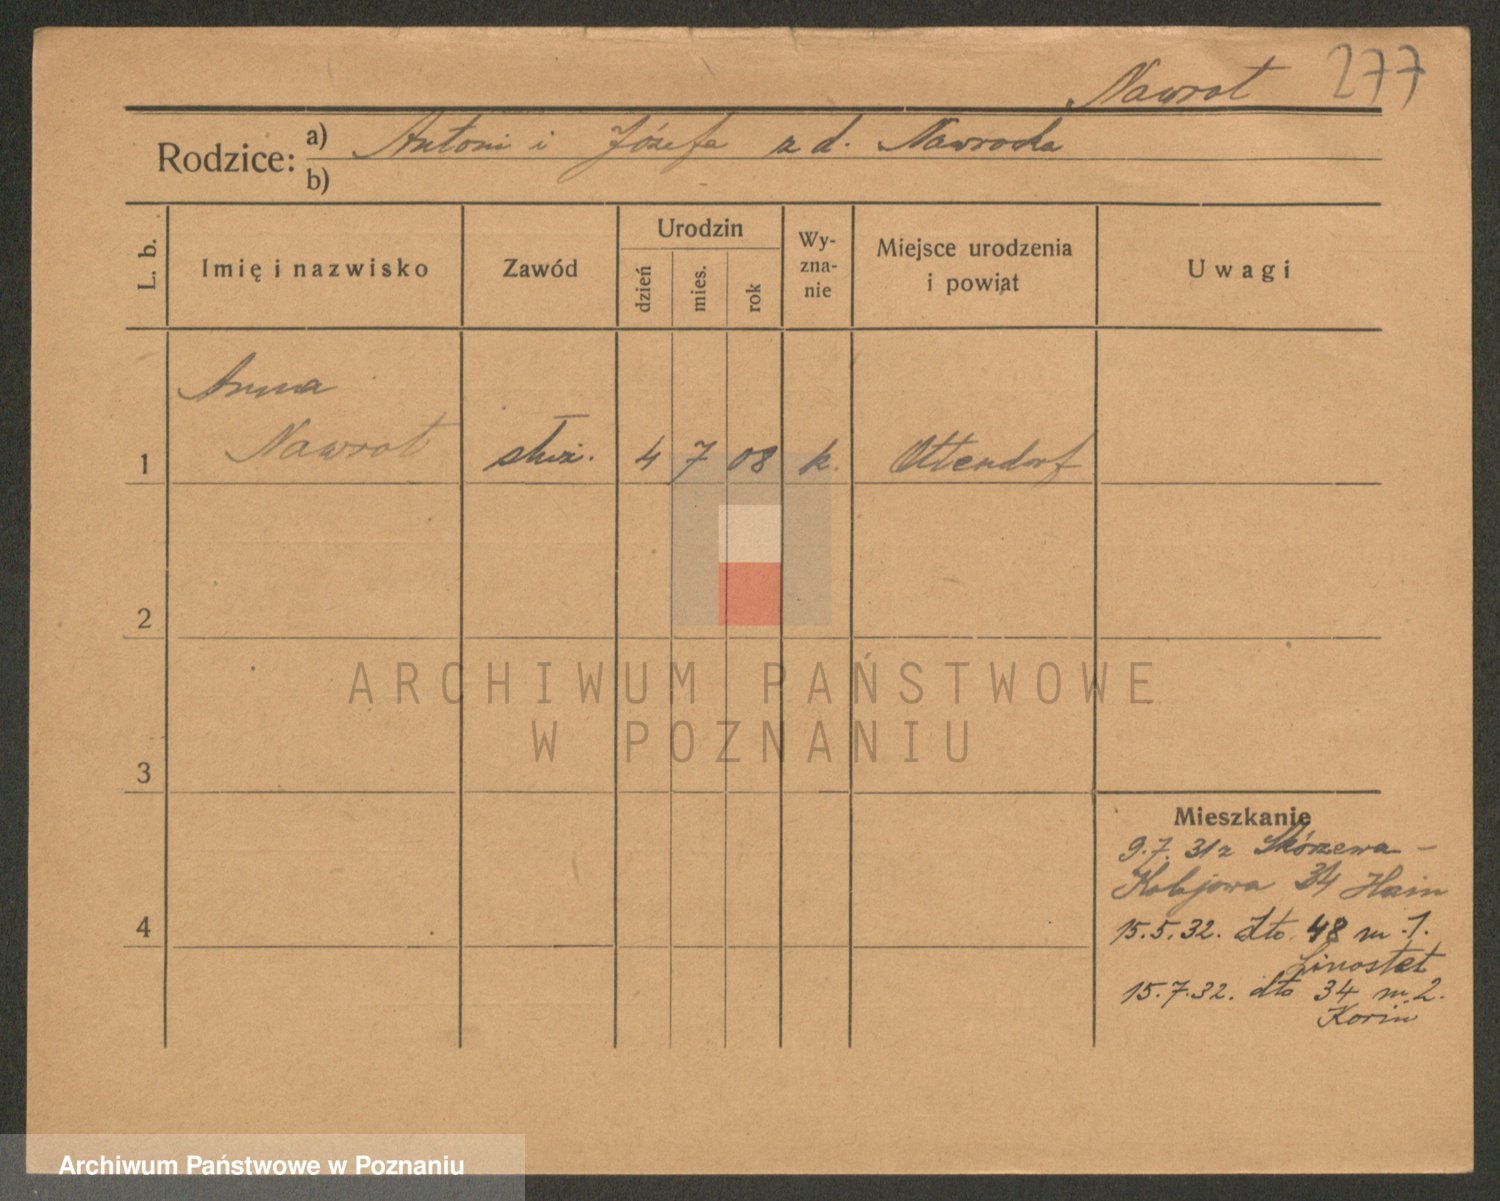 Nawrot 277
Rodzice: a) Antoni i Józefa z d. Nawrocka
b)
L. b.
Imię i nazwisko
Zawód
Urodzin
dzień
mies.
rok
Wy-
zna-
nie
Miejsce urodzenia
i powiat
Uwagi
Anna
1 Nawrot służ. 4 7 08 k. Ottendorf
2
ARCHIWUM PAŃSTWOWE
W POZNANIU
3
Mieszkanie
9.7.31 z Skórzewa -
34
15.5.32. dto 48 m. 1.
15.7.32. dto 34 m. 2.
4
Archiwum Państwowe w Poznaniu